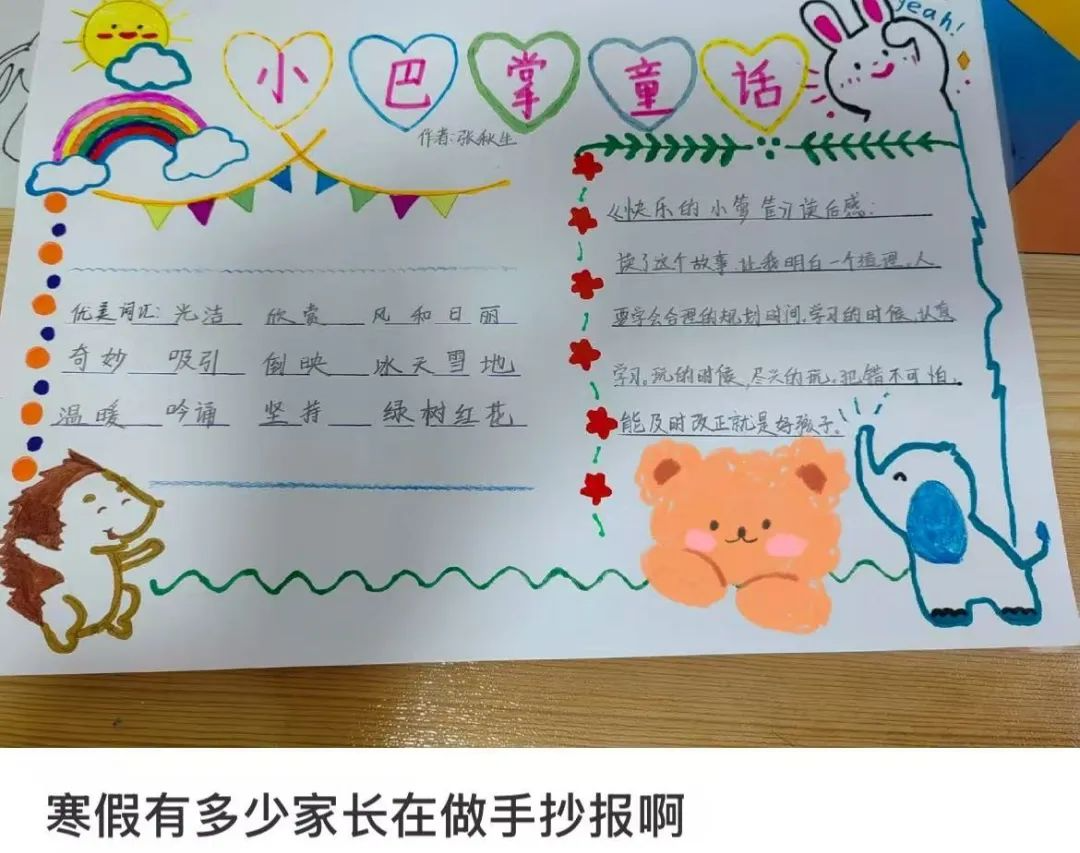 小巴掌童话
yeah!
作者:张秋生
优美词汇:光洁 欣赏 风和日丽
奇妙 吸引 倒映 冰天雪地
温暖 吟诵 坚持 绿树红花
《快乐的小箩筐》读后感:
读了这个故事,让我明白一个道理,人
要学会合理的规划时间,学习的时候,认真
学习。玩的时候,尽兴的玩。犯错不可怕,
能及时改正就是好孩子!
寒假有多少家长在做手抄报啊